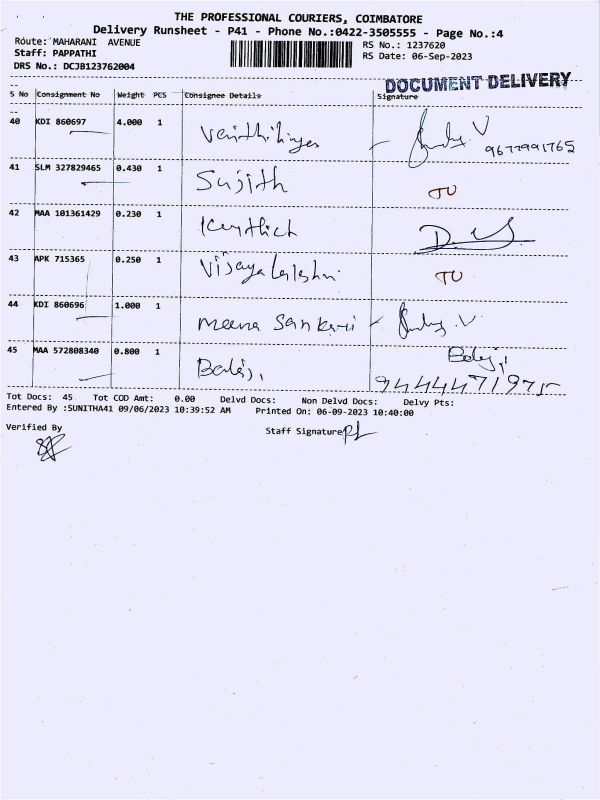 THE PROFESSIONAL COURIERS, COIMBATORE
Delivery Runsheet - P41 - Phone No.:0422-3505555 - Page No.:4
Route: MAHARANI AVENUE
RS No.: 1237620
Staff: PAPPATHI
RS Date: 06-Sep-2023
DRS No.: DCJB123762004
DOCUMENT DELIVERY
S No Consignment No Weight PCS Consignee Details Signature
40 KDI 860697 4.000 1
9677991765
41 SLM 327829465 0.430 1 Sujith TU
42 MAA 101361429 0.230 1
43 APK 715365 0.250 1 TU
44 KDI 860696 1.000 1 Meena Sankari
45 MAA 572808340 0.800 1 Balaji Balaji
9444471975
Tot Docs: 45 Tot COD Amt: 0.00 Delvd Docs: Non Delvd Docs: Delvy Pts:
Entered By :SUNITHA41 09/06/2023 10:39:52 AM Printed On: 06-09-2023 10:40:00
Verified By
Staff Signature